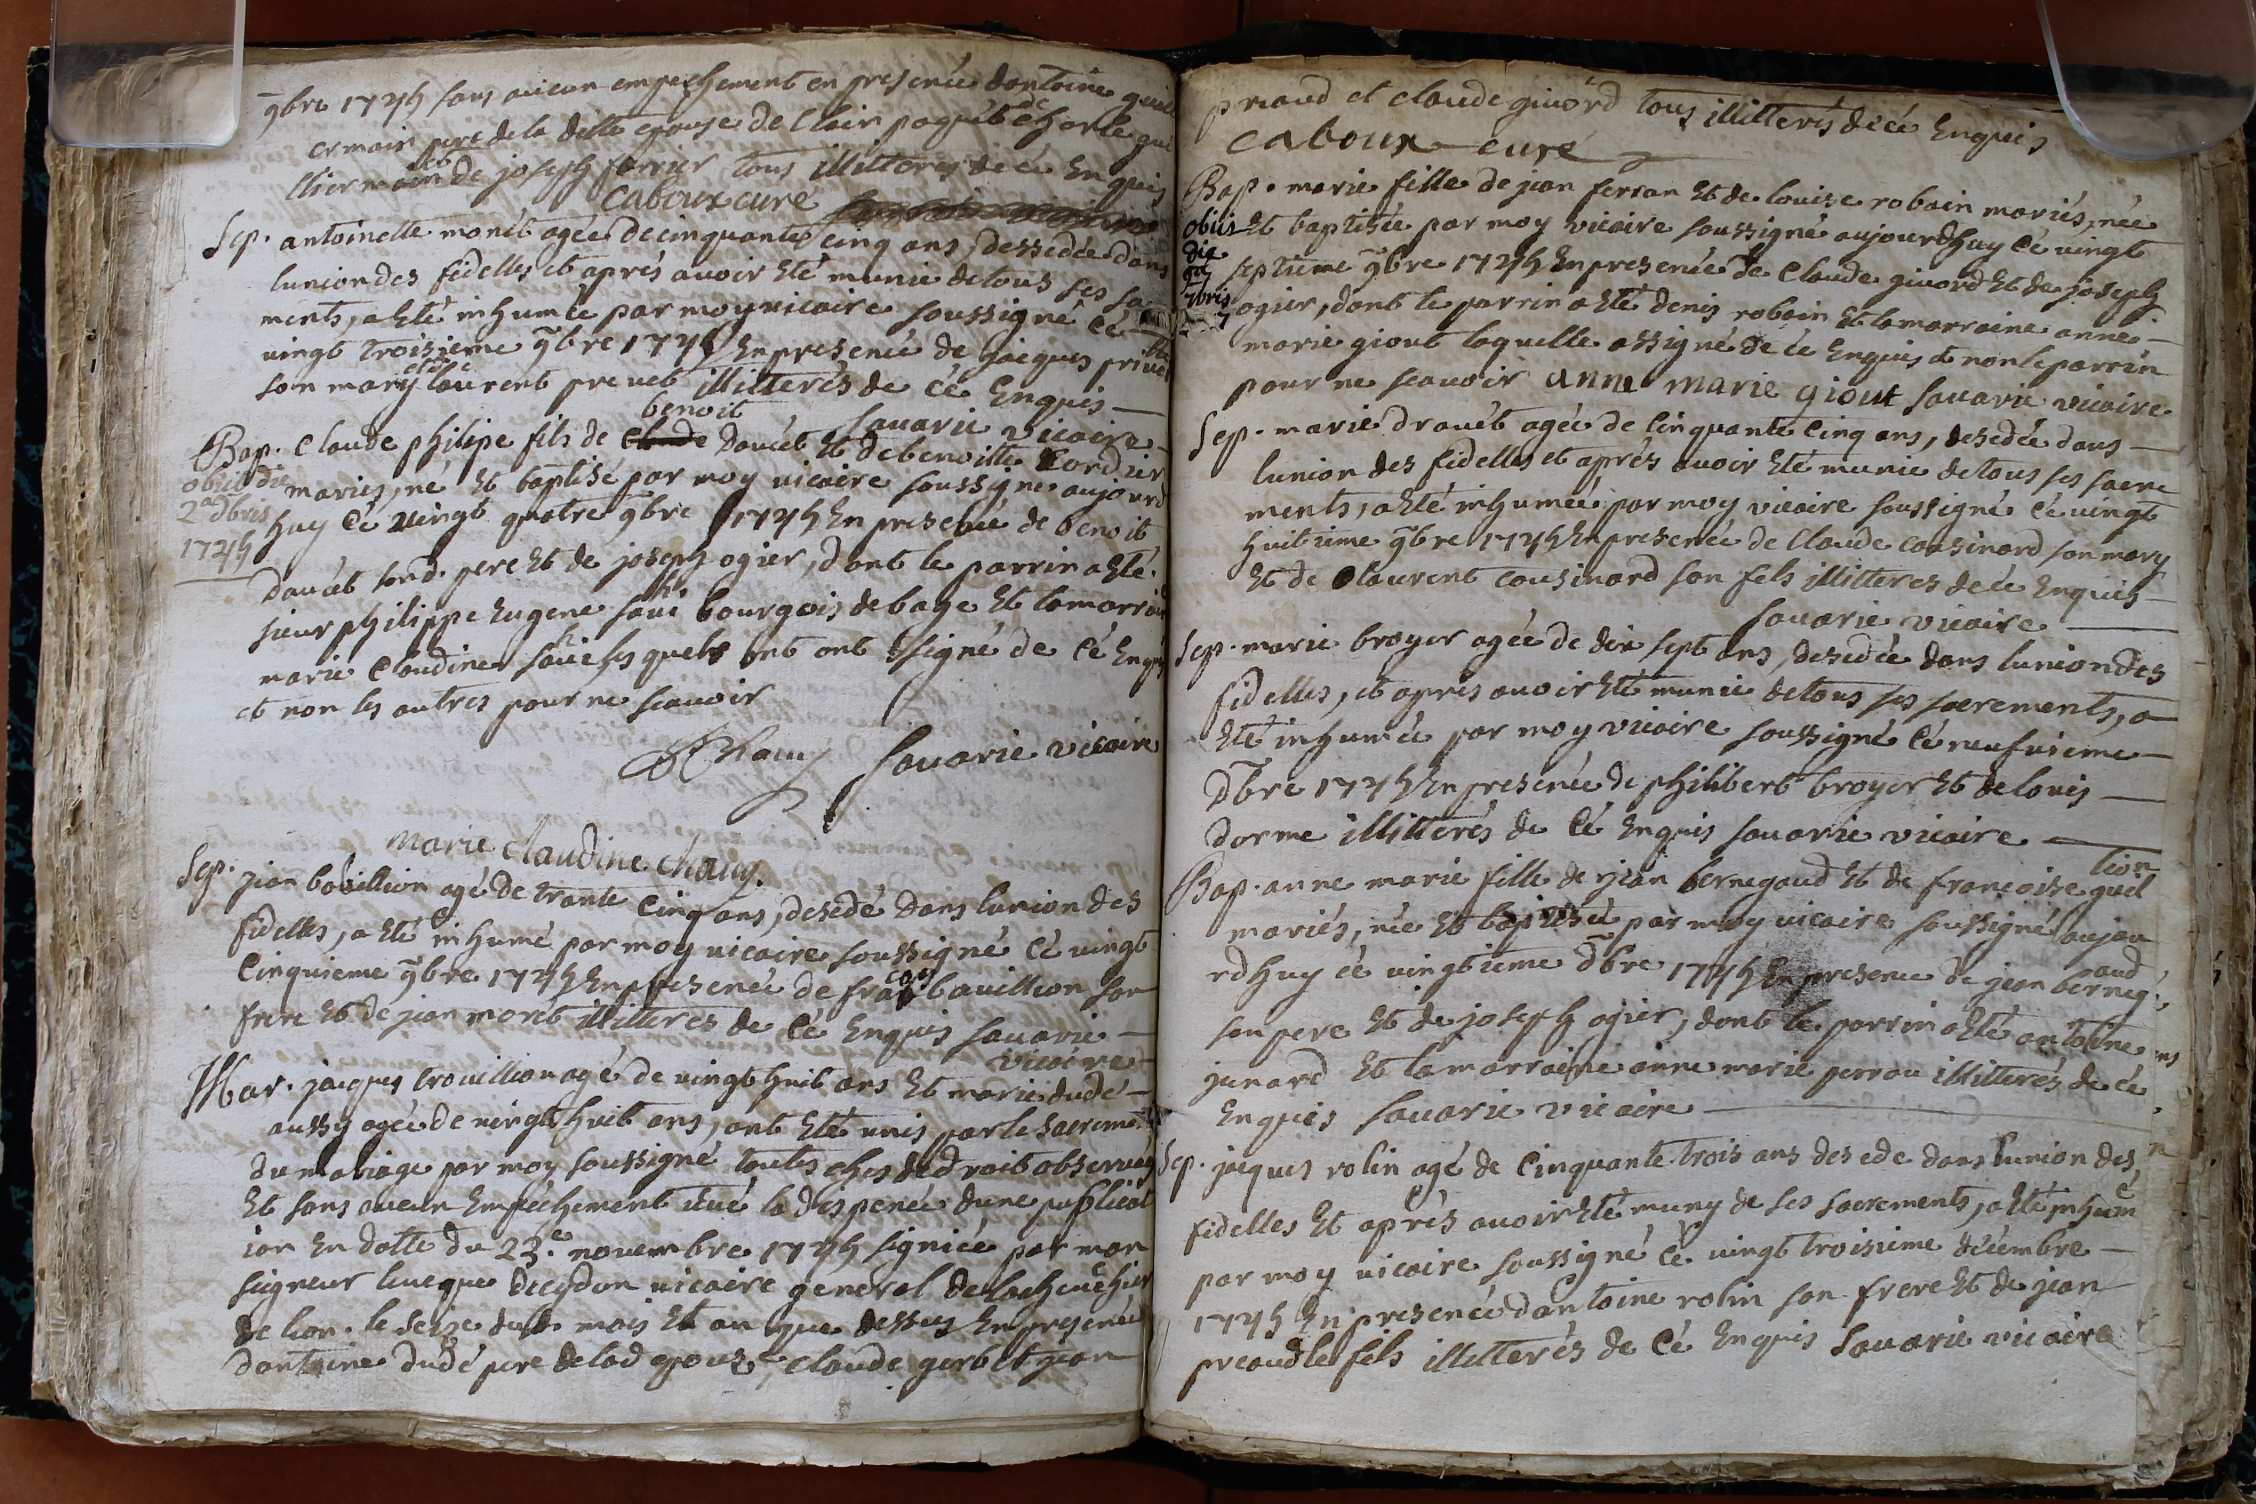 9bre 1745 sans aucun empechement en presence dantoine
ermain pere de la ditte epouse de Clair paquet de Charle
et de joseph ferrier tous illitterés de ce Enquis
Caboux curé
Sep. antoinette monet agée de cinquante cinq ans, dessedée dans
lunion des fidelles et aprés avoir eté munie de tous ses sa
ments, a Eté inhumée par moy vicaire soussigné cé
vingt troisieme 9bre 1745 En presence de jacques
son mary et de laurent illitterés de cé Enquis
benoit Savarie vicaire
Bap. Claude philipe fils de Claude doucet Et de benoitte Cordier
obiit die mariés, né Et baptisé par moy vicaire soussigne aujourd
2a dbris huy Cé vingt quatre 9bre 1745 En presence de benoit
1745
doucet sond. pere Et de joseph ogier, dont le parrin a Eté
sieur philippe Eugene bourgois de bage Et la marraine
marie Claudine lesquels ont signé de Cé Enquis
et non les autres pour ne scavoir
Chauy Savarie vicaire
Marie Claudine Chauy.
Sep. jean bouillion agé de trante Cinq ans, desedé dans lunion des
fidelles, a Eté inhumé par moy vicaire soussigné Cé vingt
Cinquieme 9bre 1745 En presence de bouillion son
frere Et de jean moret illitterés de Cé Enquis Savarie
vicaire
Mar. jacques trouillion agé de vingt huit ans Et marie dudé
aussy agée de vingt huit ans, ont Eté unis par le sacreme
du mariage par moy soussigné toutes choses de droit observées
Et sans aucun Empéchement veue la dispence dune publicat
ion En datte du 23.e novembre 1745 signiée par mon
signeur leveque vicaire general de
de lion. le seize dud. mois Et an que dessus En presence
dantoine dudé pere de lad epouse, claude gerbet jean
preaud et claude givord tous illitterés de cé Enquis
Caboux curé
Bap. marie fille de jean ferran Et de louise robain mariés, née
obiit Et baptisée par moy vicaire soussigné aujourdhuy Cé vingt
die septieme 9bre 1745 En presence de Claude givord Et de joseph
ogier, dont le parrin a Eté denis robain Et la marraine anne
marie giout laquelle a signé de cé Enquis et non le parrin
pour ne scavoir anne marie giout Savarie vicaire
Sep. marie drouét agée de Cinquante Cinq ans, desedée dans
lunion des fidelles et aprés avoir Eté munie de tous ses sacre
ments, a Eté inhumée par moy vicaire soussigné Cé vingt
huitieme 9bre 1745 En presence de Claude cousinard son mary
Et de laurent cousinard son fils illitterés de cé Enquis
Savarie vicaire
Sep. marie broyer agée de dix sept ans, desedée dans lunion des
fidelles, et aprés avoir Eté munie de tous ses sacrements, a
Eté inhumée par moy vicaire soussigné Cé neufvieme
dbre 1745 En presence de philibert broyer Et de louis
dorme illitterés de Cé Enquis Savarie vicaire
Bap. anne marie fille de jean bernegaud Et de francoise
mariés, née Et baptisée par moy vicaire soussigné aujou
rdhuy cé vingtieme dbre 1745 En presence de jean bernegaud
son pere Et de joseph ogier, dont le parrin a Eté antoine
junard Et la marraine anne marie perrou illitterés de cé
Enquis Savarie vicaire
Sep. jacques rolin agé de Cinquante trois ans desede dans lunion des
fidelles Et aprés avoir Eté muny de ses sacrements, a Eté inhumé
par moy vicaire soussigné Cé vingt troisieme décembre
1745 En presence dantoine rolin son frere Et de jean
preaud le fils illitterés de Cé Enquis Savarie vicaire